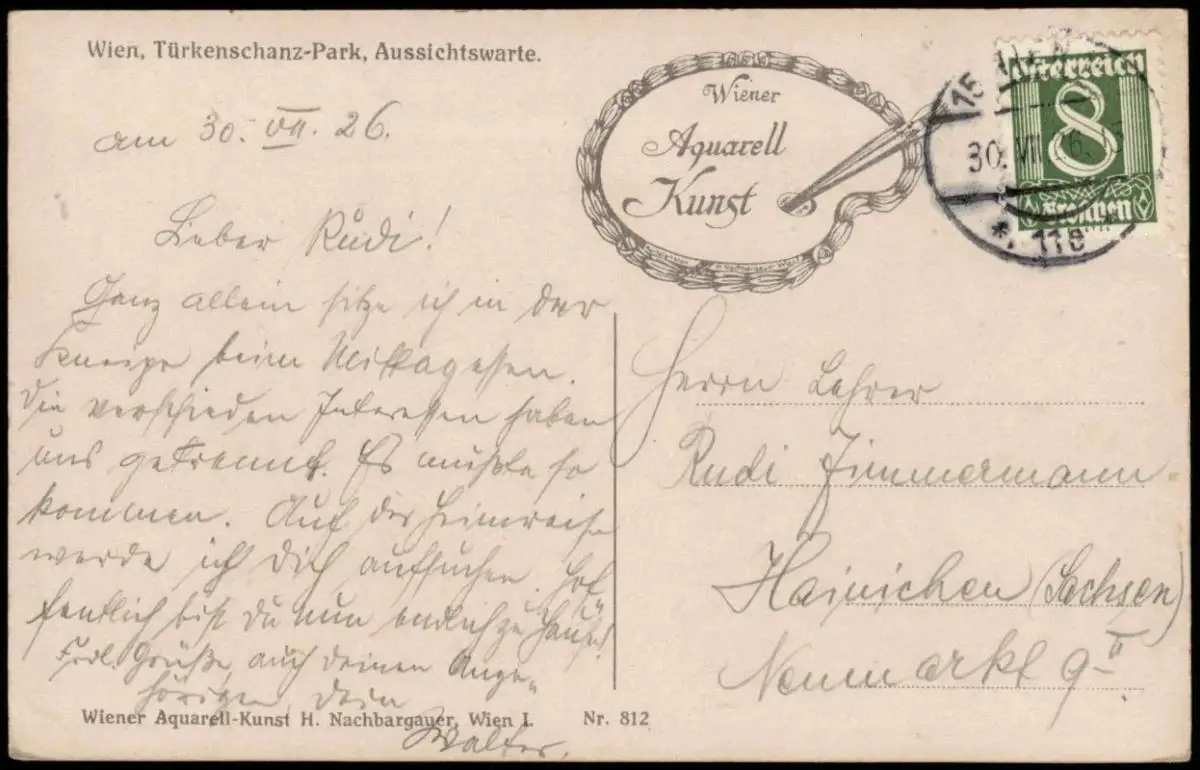 Wien, Türkenschanz-Park, Aussichtswarte.
am 30. VII. 26.
Lieber Rudi!
Ganz allein sitze ich in der
Kneipe beim Mittagessen.
Die verschieden Interessen haben
uns getrennt. Es mußte so
kommen. Auf der Heimreise
werde ich Dich aufsuchen. Hof
fentlich bist Du nun endlich zu Hause!
Frdl. Grüße auch deinen Ange-
hörigen Dein
Walter.
Wiener Aquarell-Kunst H. Nachbargauer, Wien I. Nr. 812
Wiener
Aquarell
Kunst
Österreich
8
Groschen
15 WIEN
30. VII. 26.
*. 118 *
Herrn Lehrer
Rudi Zimmermann
Hainichen (Sachsen)
Neumarkt 9 II